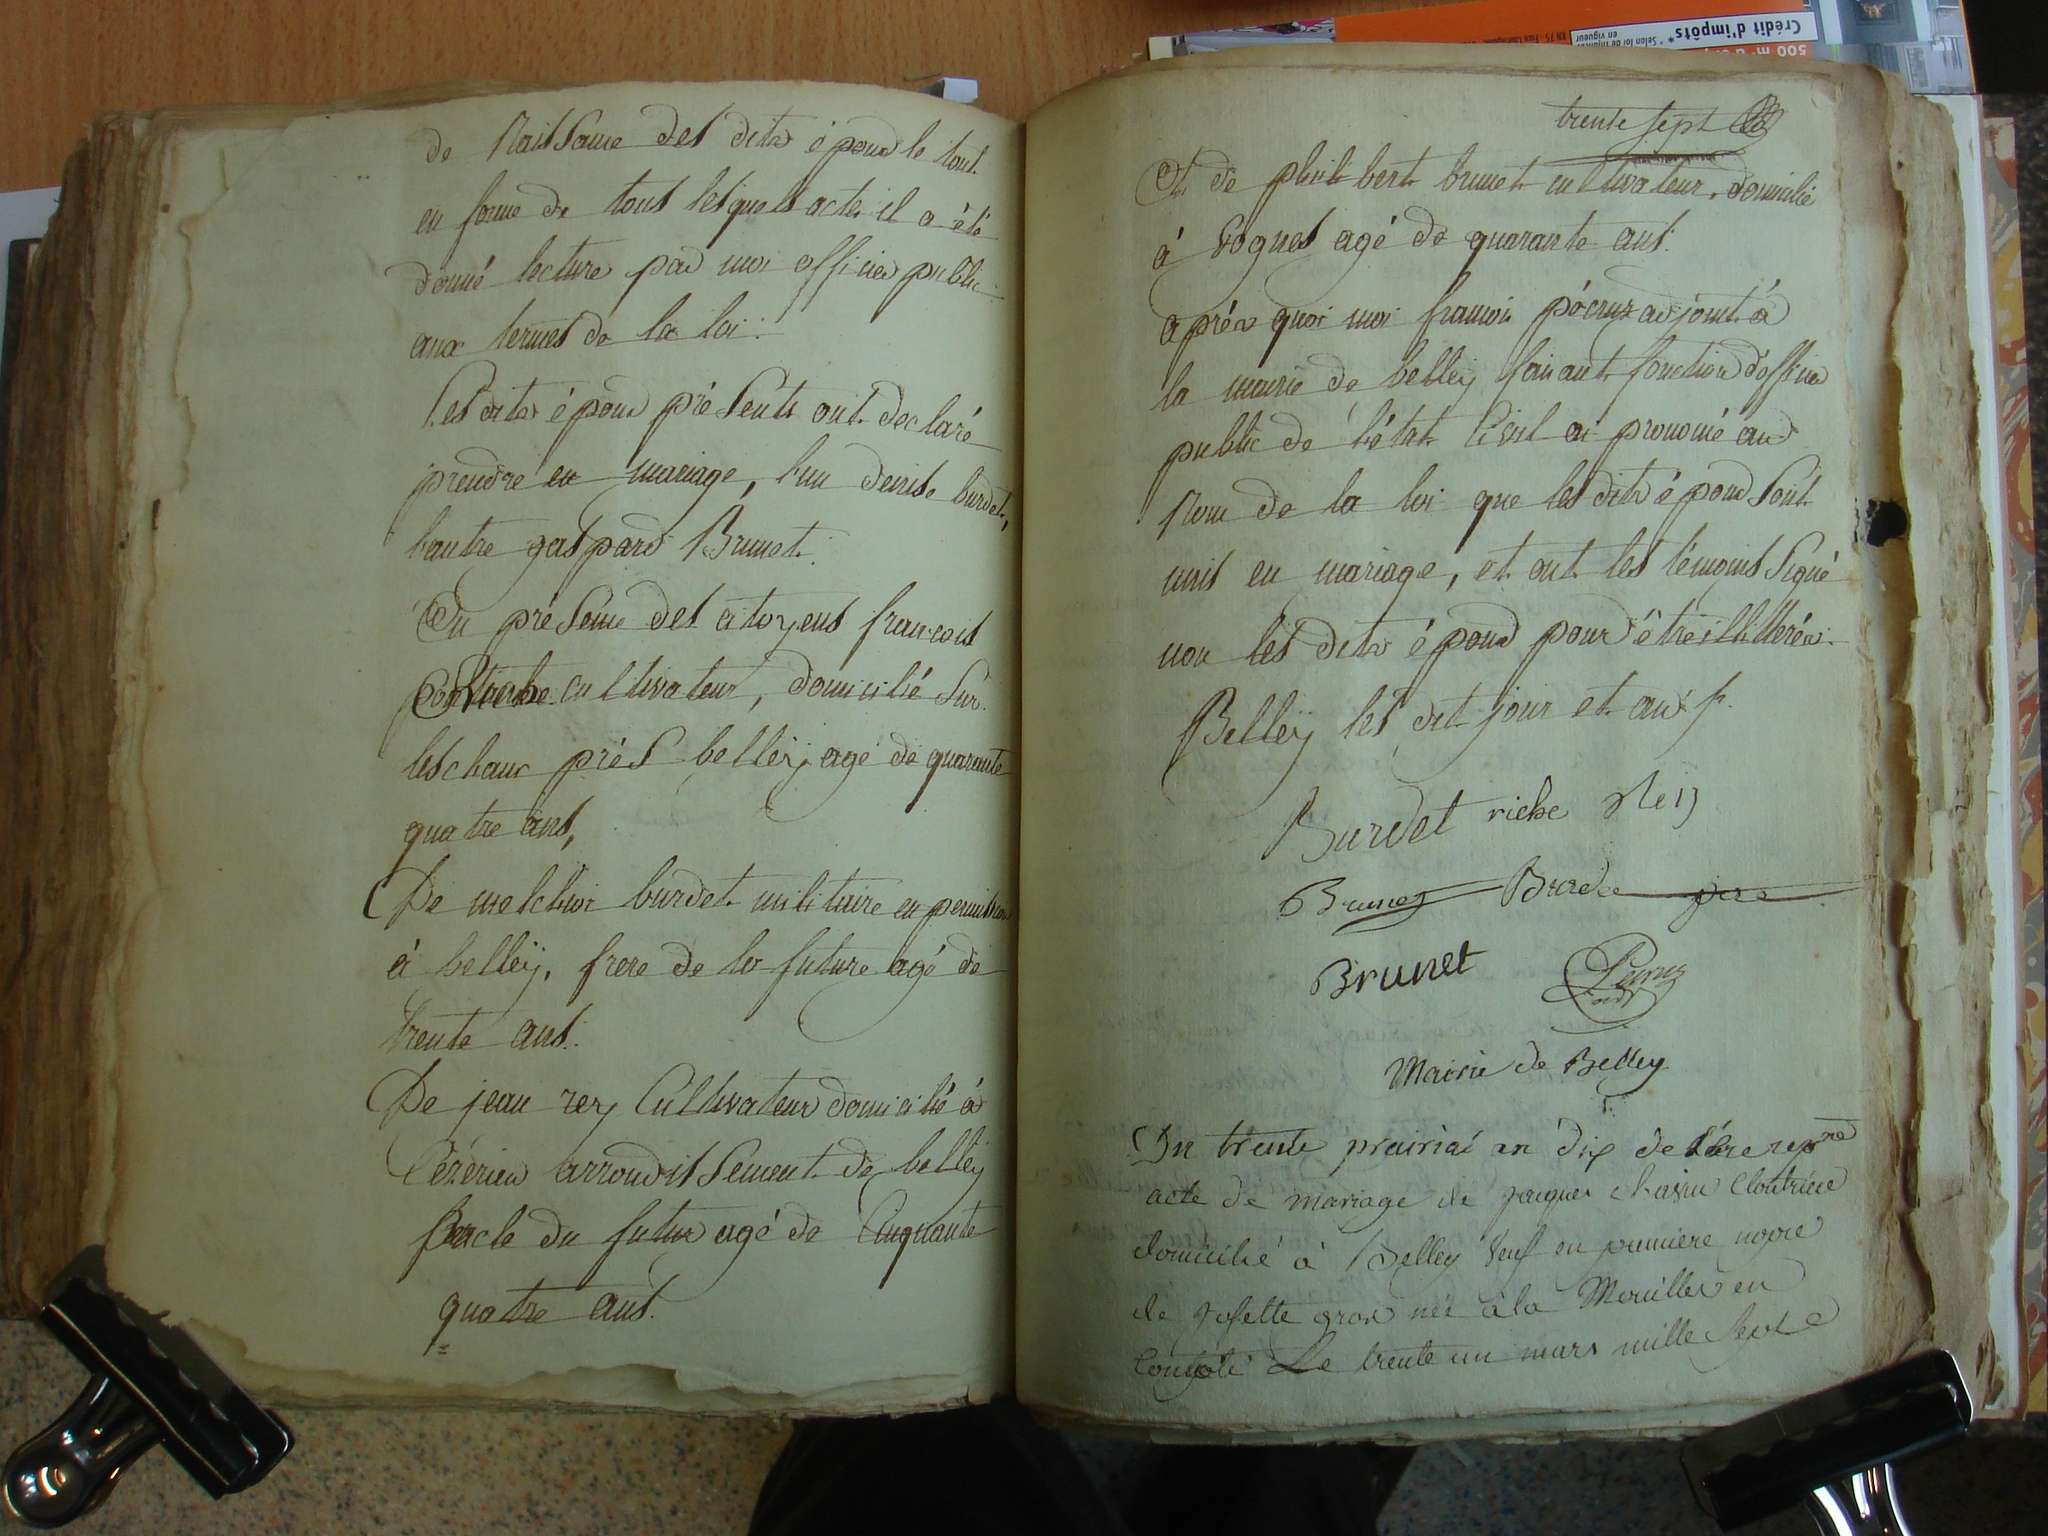 de Naissance des dits époux le tout
en forme de tous lesquels actes il a été
donné lecture par moi officier public
aux termes de la loi.
Les dits époux présents ont declaré
prendre en mariage, l'un denise burdet,
l'autre gaspard Brunet.
En présence des citoyens francois
cultivateur, domicilié sur
les chaux près belley, agé de quarante
quatre ans,
De melchior burdet militaire en permission
à belley, frere de la future agé de
trente ans.
De jean rey Cultivateur domicilié à
Cézérieu arrondissement de belley
oncle du futur agé de Cinquante
quatre ans.
trente sept
Et de philibert brunet cultivateur, domicilié
à Vognes agé de quarante ans.
après quoi moi francois pécruz adjoint à
la mairie de belley faisant fonction d'officier
public de l'état Civil ai prononcé au
Nom de la loi que les dits époux sont
unis en mariage, et ont les témoins signé
non les dits époux pour être illitéréz.
Belley les dit jour et an.
Burdet riche Rey
Brunet Burdet père
Brunet Pecruz adjt
Mairie de Belley
Du trente prairial an dix de l'ère repne
acte de mariage de jacques
domicilié à Belley veuf en première nopce
de Josette gros née à la en
Le trente un mars mille sept
Crédit d'impôts
* Selon loi de finances
en vigueur
500 m²